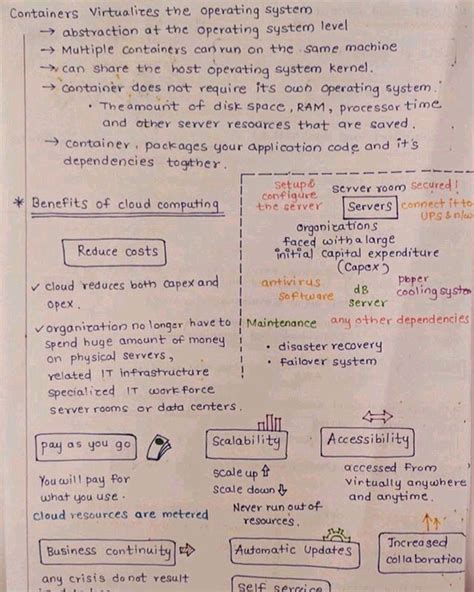 Containers Virtualizes the operating system
→ abstraction at the operating system level
→ Multiple containers can run on the same machine
→ can share the host operating system kernel.
→ Container does not require its own operating system.
• The amount of disk space, RAM, processor time
and other server resources that are saved.
→ container, packages your application code and it's
dependencies together.
* Benefits of cloud computing
Reduce costs
✓ cloud reduces both capex and
opex.
✓ organization no longer have to
spend huge amount of money
on physical servers,
related IT infrastructure
specialized IT workforce
server rooms or data centers.
setup &
configure
the server
server room
secured!
Servers
connect it to
UPS & n/w
Organizations
faced with a large
initial capital expenditure
(Capex)
antivirus
software
dB
server
cooling system
Maintenance
any other dependencies
• disaster recovery
• failover system
pay as you go
You will pay for
what you use.
cloud resources are metered
Scalability
scale up ⇑
scale down ⇓
Never run out of
resources.
Accessibility
accessed from
virtually anywhere
and anytime.
Business continuity ⇨
any crisis do not result
Automatic Updates
Self service
Increased
collaboration